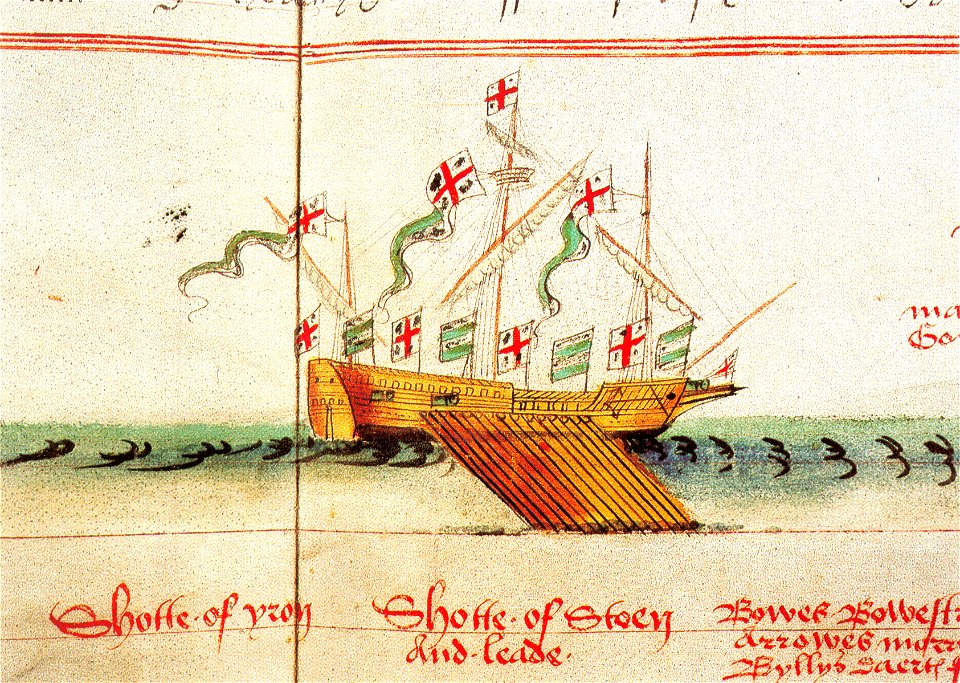 Shotte · of yron
Shotte · of Stoen
And · leade ·
Bowes Bowestr
Arrowes morr
Byllys Daert
ma
Go